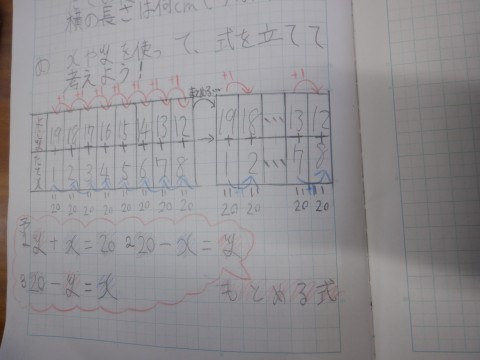 横の長さは何cmで
め xやyを使って、式を立てて
考えよう!
+1 +1 +1 +1 +1 +1 +1 +1 +1
19 18 17 16 15 14 13 12 → 19 18 … 13 12
+ + + + + + + + + + + +
1 2 3 4 5 6 7 8 1 2 … 7 8
|| || || || || || || || || || || ||
20 20 20 20 20 20 20 20 20 20 20 20
y+x=20 2 20-x=y
3 20-y=x もとめる式